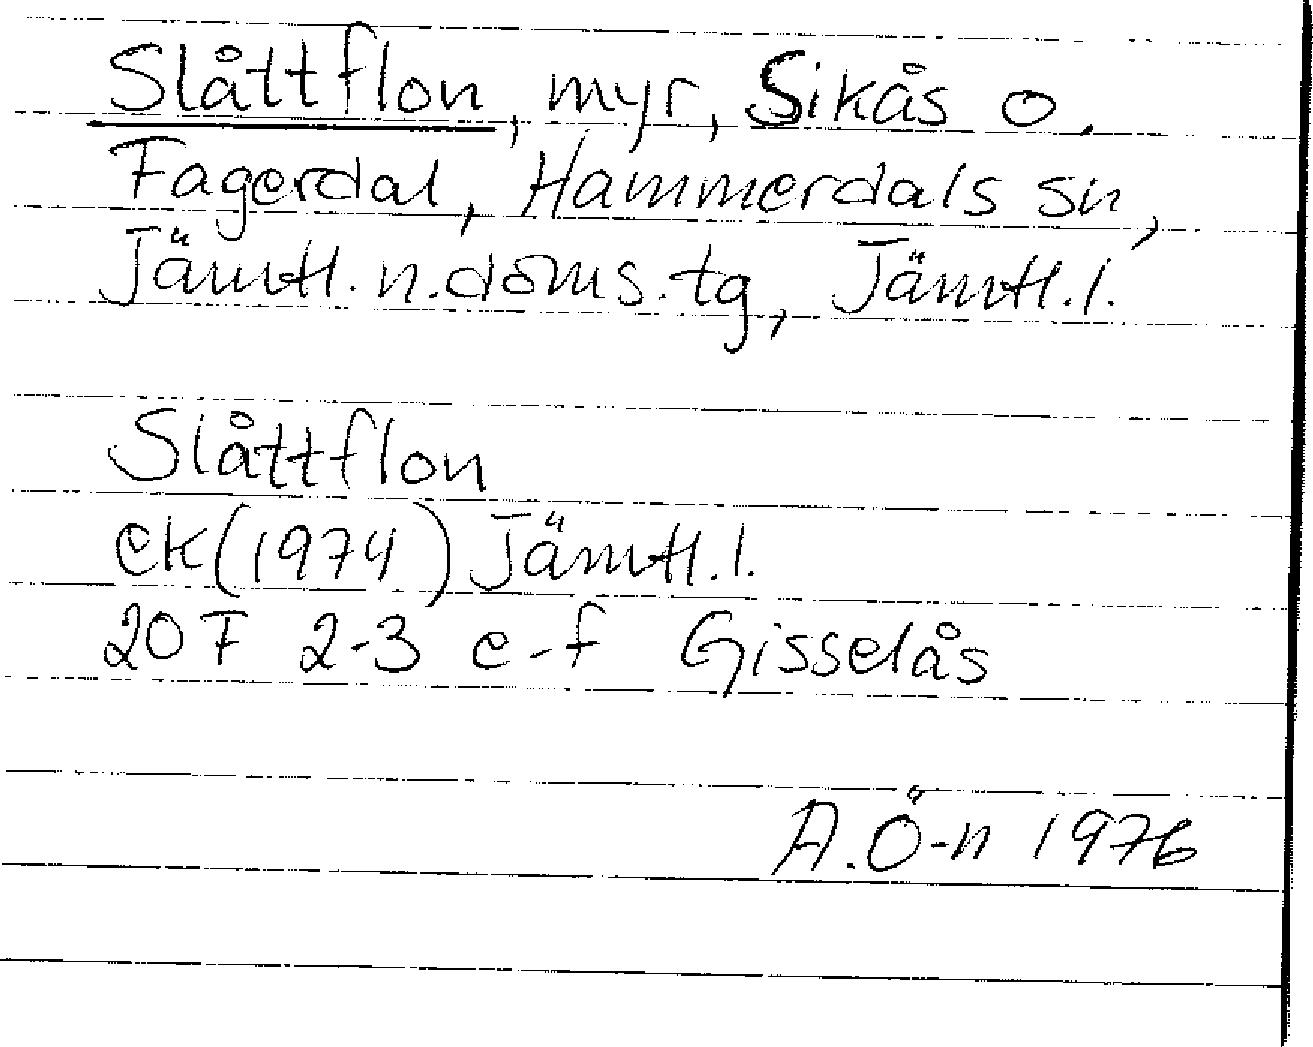 Slåttflon, myr, Sikås o.
Fagerdal, Hammerdals sn,
Jämtl. n. doms. tg, Jämtl. l.
Slåttflon
ek (1974) Jämtl. l.
20 F 2-3 e-f Gisselås
A. Ö-n 1976